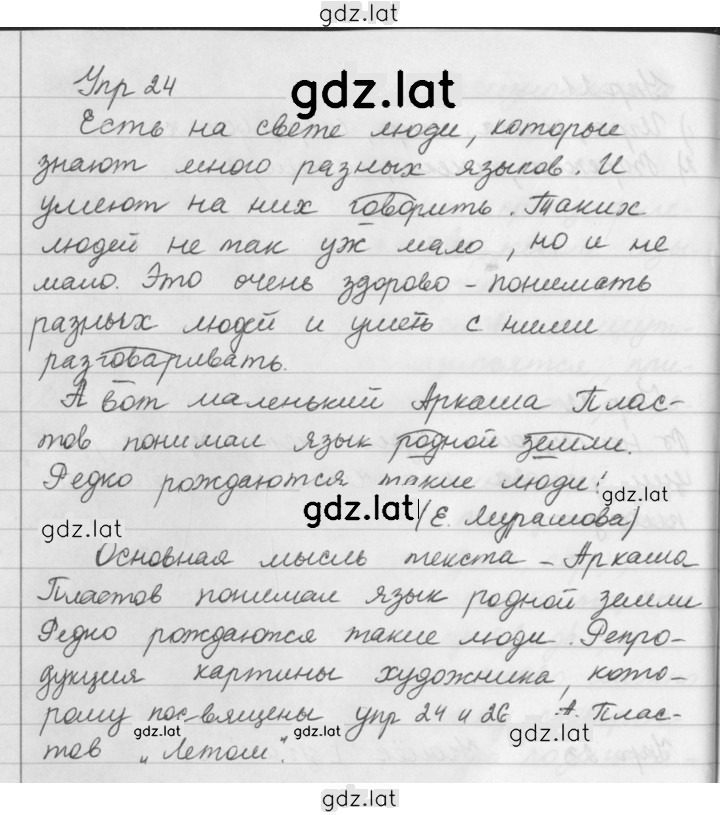 gdz.lat
Упр 24
gdz.lat
Есть на свете люди, которые
знают много разных языков. И
умеют на них говорить. Таких
людей не так уж мало, но и не
мало. Это очень здорово – понимать
разных людей и уметь с ними
разговаривать.
А вот маленький Аркаша Плас-
тов понимал язык родной земли.
Редко рождаются такие люди!
gdz.lat
gdz.lat
gdz.lat
(Е. Мурашова)
Основная мысль текста – Аркаша
Пластов понимал язык родной земли
Редко рождаются такие люди. Репро-
дукция картины художника, кото-
рому посвящены упр 24 и 26 – А. Плас-
тов „Летом".
gdz.lat
gdz.lat
gdz.lat
gdz.lat